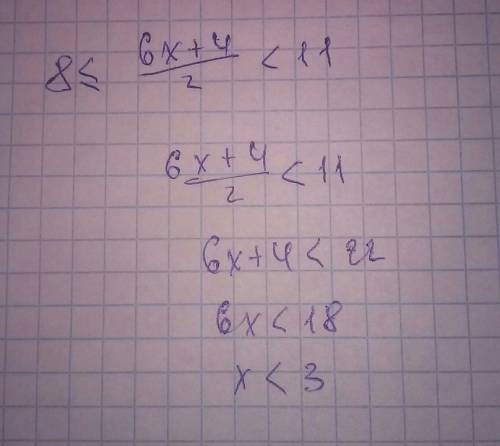 8 ≤ (6x+4)/2 < 11
(6x+4)/2 < 11
6x+4 < 22
6x < 18
x < 3